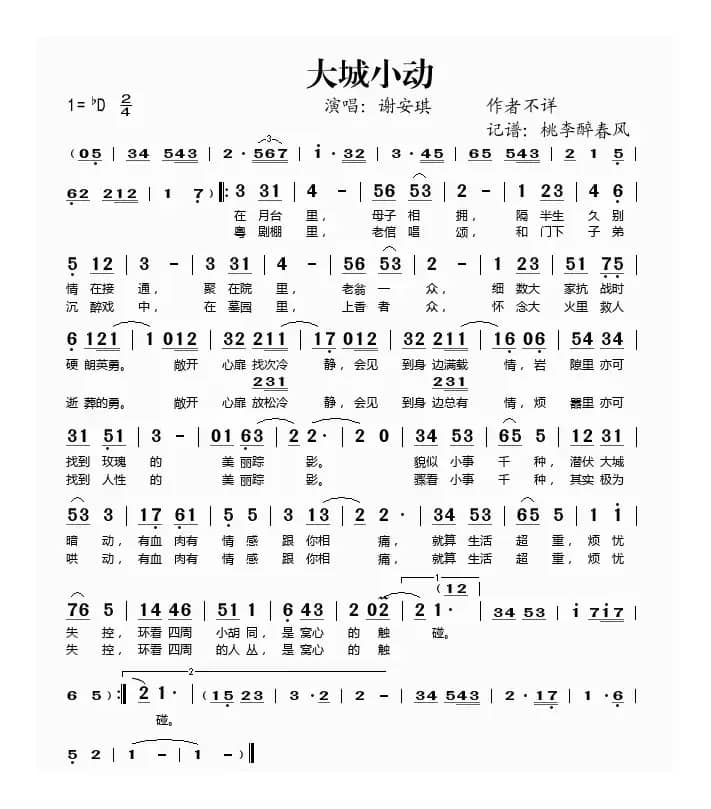 大城小动
1=♭D 2/4 演唱：谢安琪 作者不详
记谱：桃李醉春风
(05 | 34 543 | 2· 567 | i· 32 | 3· 45 | 65 543 | 2 1 5
62 212 | 1 7) ‖: 3 31 | 4 - | 56 53 | 2 - | 1 23 | 4 6 |
在 月台 里， 母子 相 拥， 隔 半生 久 别
粤 剧棚 里， 老倌 唱 颂， 和 门下 子 弟
5 12 | 3 - | 3 31 | 4 - | 56 53 | 2 - | 1 23 | 51 75 |
情 在接 通， 聚 在院 里， 老翁 一 众， 细 数大 家抗 战时
沉 醉戏 中， 在 墓园 里， 上香 者 众， 怀 念大 火里 救人
6 121 | 1 012 | 32 211 | 17 012 | 32 211 | 16 06 | 54 34 |
硬 朗英勇。 敞开 心扉 找次冷 静，会见 到身 边满载 情，岩 隙里 亦可
231 231
逝 葬的勇。 敞开 心扉 放松冷 静，会见 到身 边总有 情，烦 嚣里 亦可
31 51 | 3 - | 01 63 | 2 2· | 2 0 | 34 53 | 65 5 | 12 31 |
找到 玫瑰 的 美 丽踪 影。 貌似 小事 千 种，潜伏 大城
找到 人性 的 美 丽踪 影。 骤看 小事 千 种，其实 极为
53 3 | 17 61 | 5 5 | 3 13 | 2 2· | 34 53 | 65 5 | 1 i |
暗 动，有血 肉有 情 感 跟 你相 痛，就算 生活 超 重，烦 忧
哄 动，有血 肉有 情 感 跟 你相 痛，就算 生活 超 重，烦 忧
1 (12
76 5 | 14 46 | 51 1 | 6 43 | 2 02 | 2 1· | 34 534 | i 7i7 |
失 控，环看 四周 小胡 同，是 窝心 的 触 碰。
失 控，环看 四周 的人 丛，是 窝心 的 触
2
6 5) :‖ 2 1· | (15 23 | 3 ·2 | 2 - | 34 543 | 2 ·17 | 1 ·6 |
碰。
5 2 | 1 - | 1 -)‖